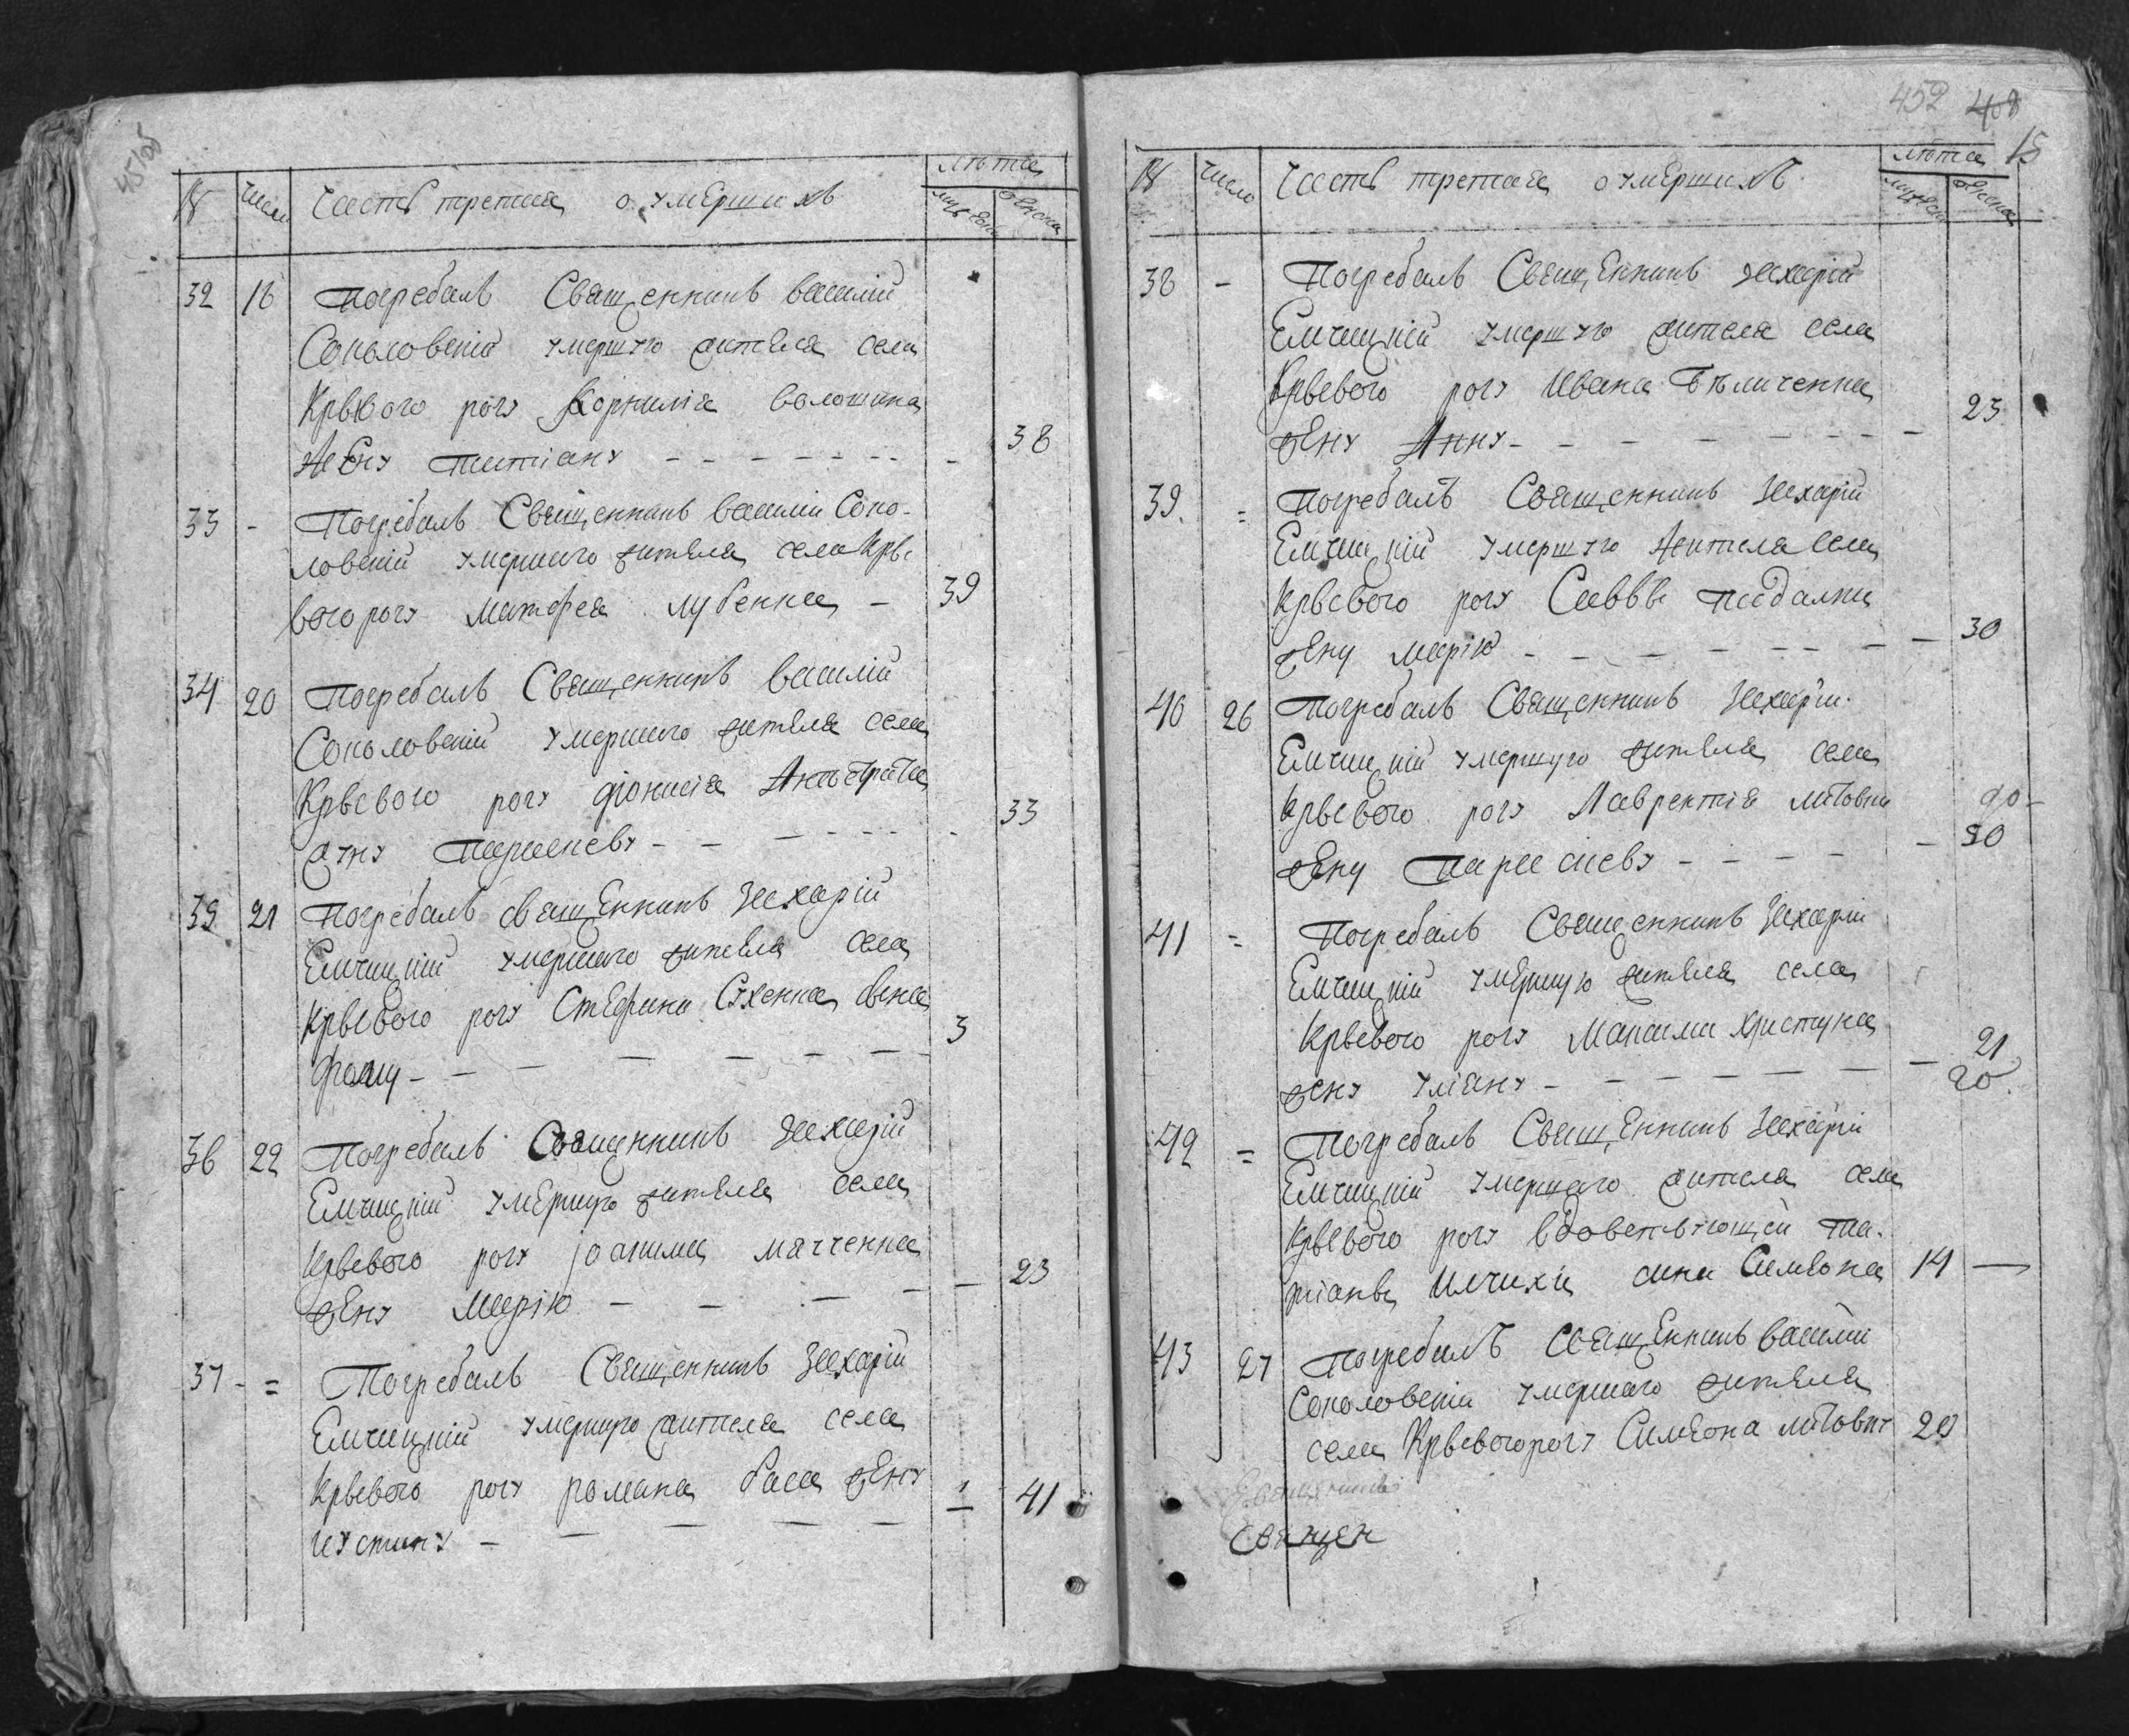 № число Часть третая о умершихъ лѣта
мужеска женска
32 18 Погребалъ Священникъ василий
Соколовский умершую жителя села
Крывого рогу Корнилія волошина
Жену татіану - - - - - - - 38
33 - Погребалъ Священникъ василий Соко-
ловский умершаго жителя села Кры
вого рогу матфея лубенка - 39
34 20 Погребалъ Священникъ василий
Соколовский умершаго жителя села
Крывого рогу діонисія
жену параскеву - - - - - - 33
35 21 Погребалъ священникъ Захарій
Емчицкій умершаго жителя села
Крывого рогу Стефана сына
фому - - - - - - - 3
36 22 Погребалъ Священникъ Захарій
Емчицкій умершую жителя села
Крывого рогу јоакима
жену Марію - - - - - 23
37 - = Погребалъ Священникъ Захарій
Емчицкій умершую жителя села
Крывого рогу романа баса жену
іустину - - - - - - 41
452 408
15
№ число Часть третая о умершихъ лѣта
мужеска женска
38 - Погребалъ Священникъ захарій
Емчицкій умершую жителя села
Крывого рогу Ивана Бѣличенка
жену Анну - - - - - - - - 23
39. = Погребалъ Священникъ Захарій
Емчицкій умершую жителя села
Крывого рогу Саввы
жену марію - - - - - - - - 30
40 26 Погребалъ Священникъ Захарій
Емчицкій умершую жителя села
Крывого рогу Лаврентія литовки 90-
жену Параскеву - - - - - 30
41 = Погребалъ Священникъ Захарій
Емчицкій умершую жителя села
Крывого рогу Максима христуна
жену уліану - - - - - - - 21
20.
42 = Погребалъ Священникъ Захарій
Емчицкій умершаго жителя села
Крывого рогу вдовствующей та-
тіаны Илчихи сина Симеона 14 —
43 27 Погребалъ священникъ василий
Соколовский умершаго жителя
села Крывогорогу Симеона литовку 20
Священ